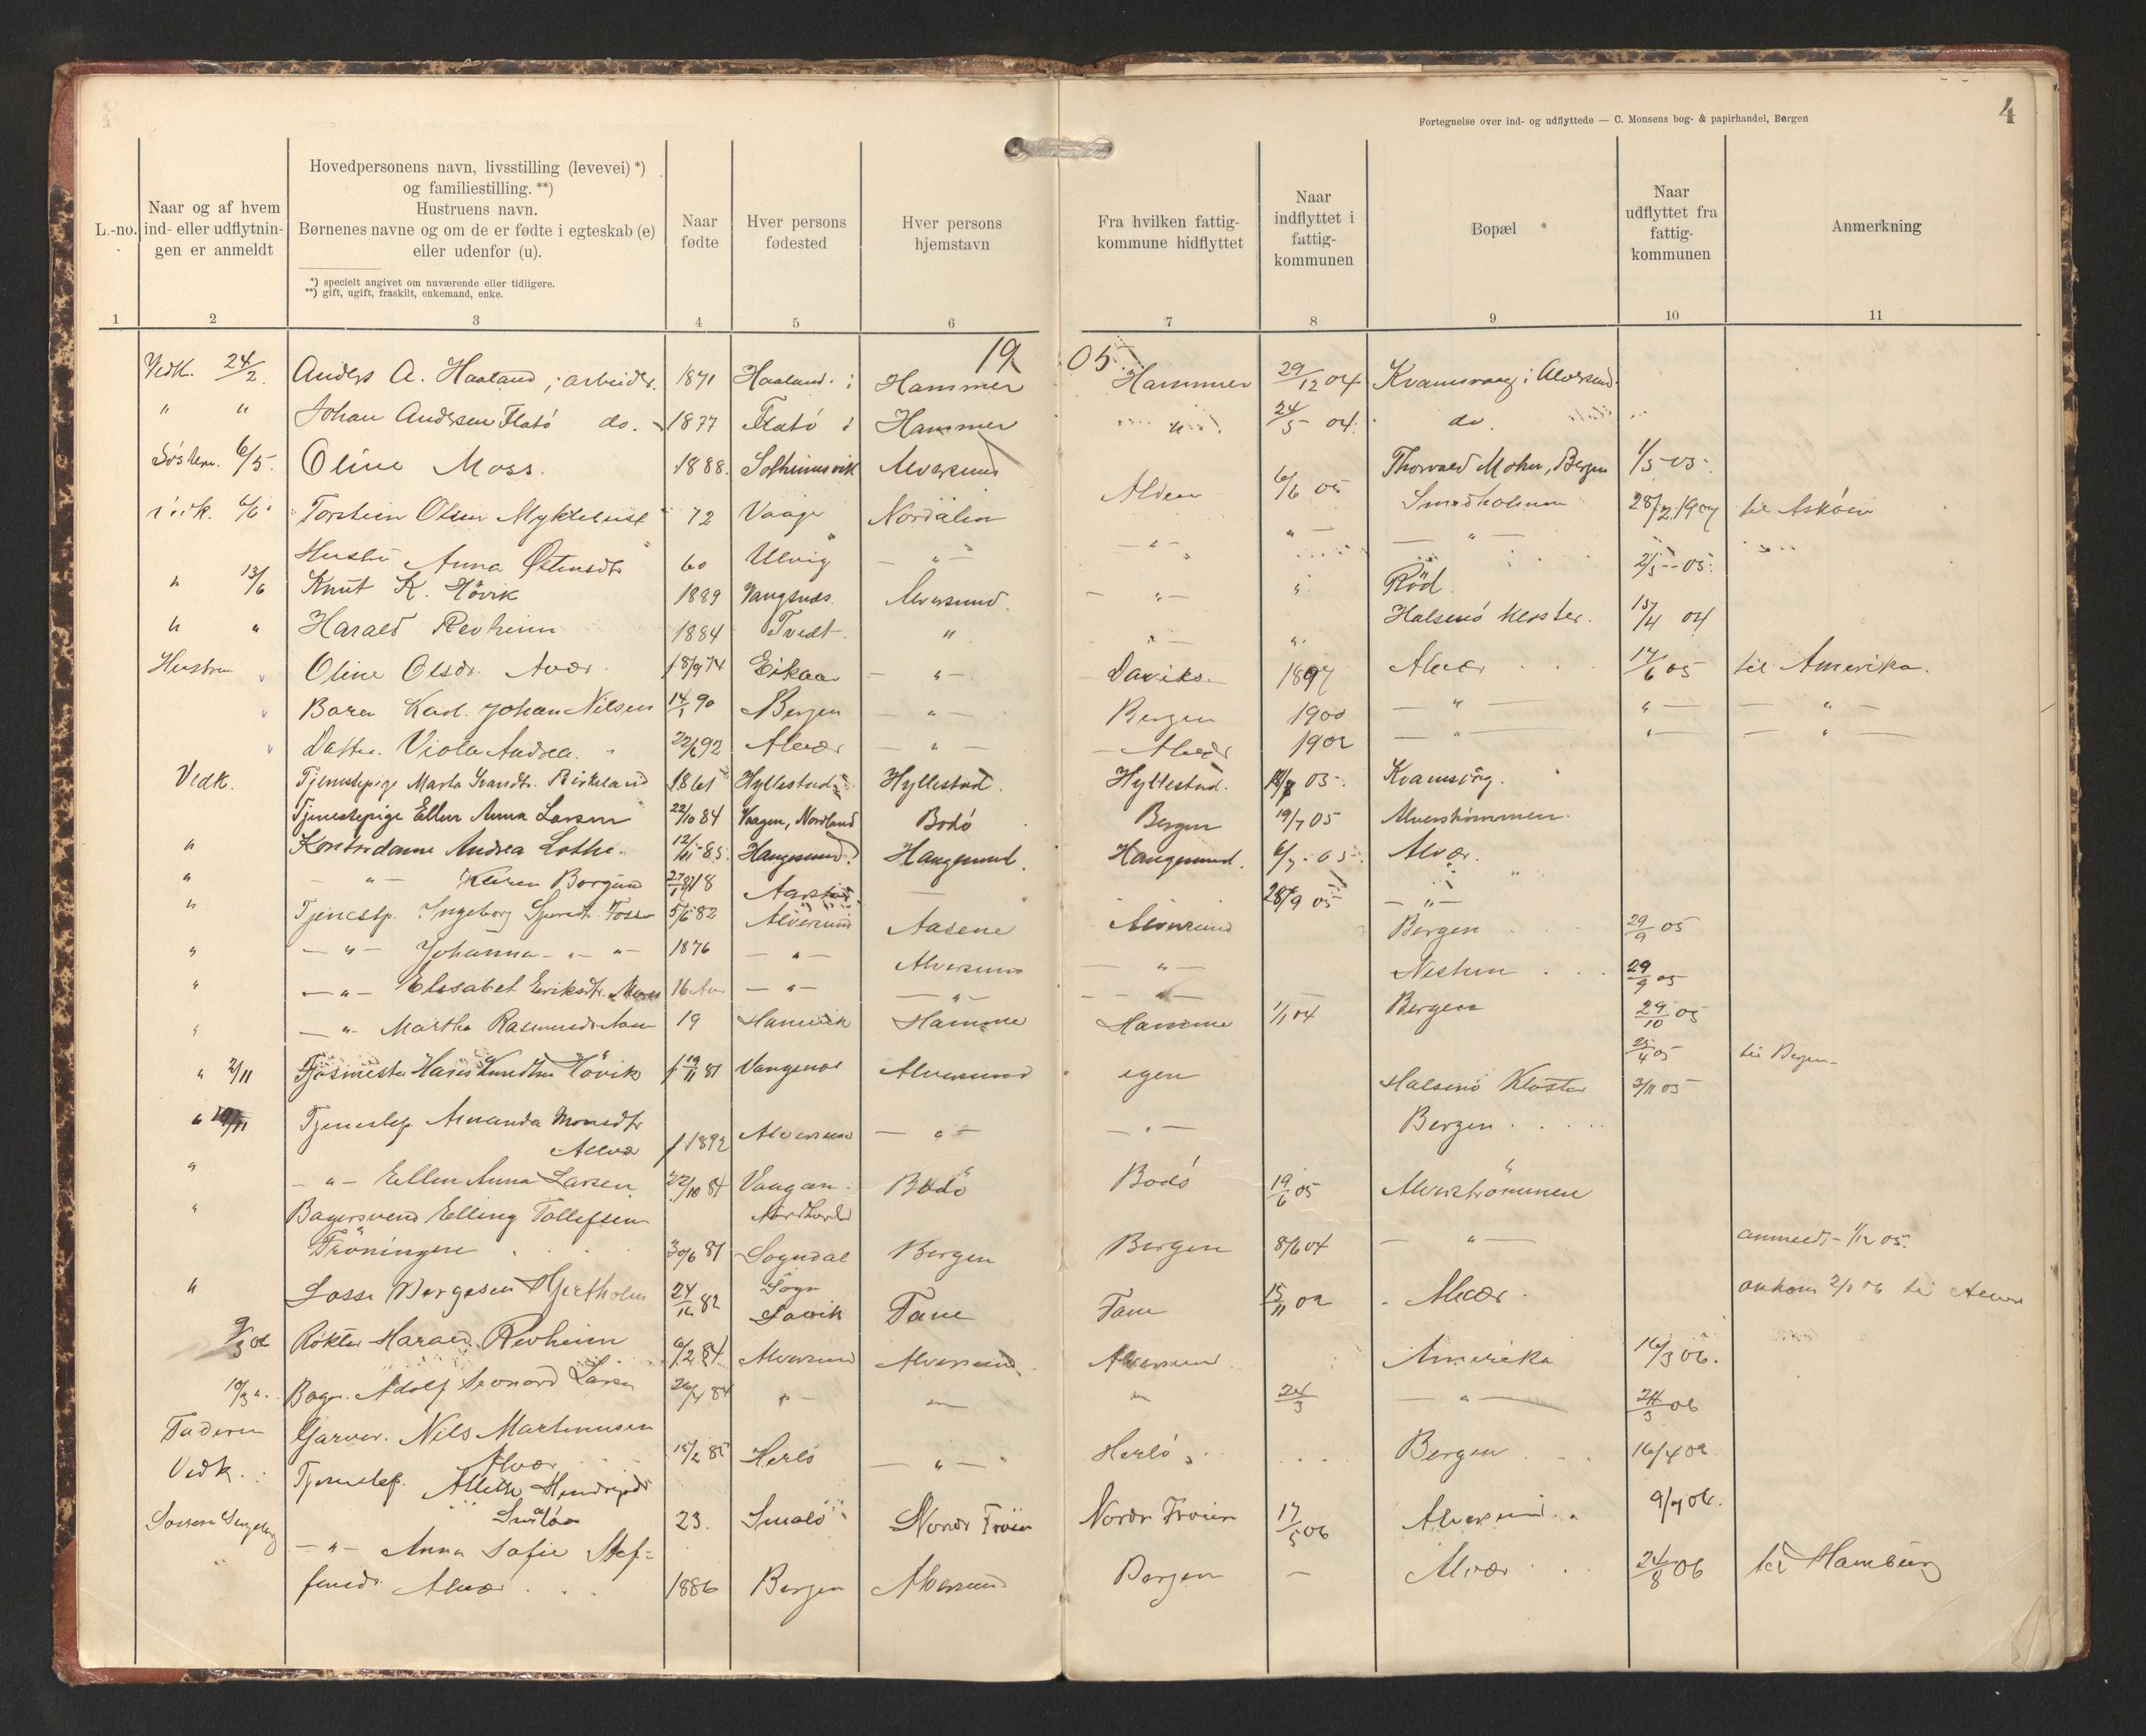 4
Fortegnelse over ind- og udflyttede — C. Monsens bog- & papirhandel, Bergen
L.-no.
Naar og af hvem
ind- eller udflytnin-
gen er anmeldt
Hovedpersonens navn, livsstilling (levevei) *)
og familiestilling. **)
Hustruens navn.
Børnenes navne og om de er fødte i egteskab (e)
eller udenfor (u).
*) specielt angivet om nuværende eller tidligere.
**) gift, ugift, fraskilt, enkemand, enke.
Naar
fødte
Hver persons
fødested
Hver persons
hjemstavn
Fra hvilken fattig-
kommune hidflyttet
Naar
indflyttet i
fattig-
kommunen
Bopæl
Naar
udflyttet fra
fattig-
kommunen
Anmerkning
1 2 3 4 5 6 7 8 9 10 11
1905
Vedk. 24/2. Anders A. Haaland, arbeider. 1871 Haaland i Hammer Hammer 29/12 04 Kvamsvaag i Alversund
" " Johan Andersen Flatö do. 1877 Flatö i Hammer " 24/5 04. do.
6/5. Oline Moss. 1888. Solheimsvik Alversund Thorvald Mohn, Bergen 1/5 05.
6/6 Torstein Olsen Myklebust 72 Vaage Nordalen Alden 6/6 05 Smedholmen 28/2 1907 til Askøen
Hustru Anna Østensdtr 60 Ulvig — " — — " — " — — " —
" 13/6 Knut K. Hövik 1889 Vangsnæs. Alversund. — " — " Röd. 2/5 - 05.
" " Harald Revheim 1884 Tvedt. " " — " Halsnö Kloster. 15/4 04
Hustru Oline Olsdr. Alvær. 18/9 74 Eikaas — " — Daviks. 1897 Alvær 17/6 05 til Amerika.
Barn Karl Johan Nilsen 14/1 90 Bergen — " — Bergen 1900 — " — " — — " —
Datter. Viola Andrea. 22/6 92 Alvær — " — Alvær 1902 — " — " — — " —
Vedk. Tjenestepige Marta Ivarsdtr. Birkeland 1861 Hyllestad Hyllestad. Hyllestad. 03. Kvamsvåg.
Tjenestepige Ellen Anna Larsen 22/10 84 Vaagan, Nordland Bodö Bergen 19/7 05 Alverströmmen.
" Kontordame Andrea Lothe. 12/11 85. Haugesund. Haugesund. Haugesund. 6/7 - 05. Alvær.
" — " — Karen Borgund Aarstad — 28/9 05 — " —
" Tjenestp. Ingeborg Sjursdt. Fosse 5/6 82 Alversund Aasene Alversund Bergen 29/9 05
" — " — Johanna — " — " 1876 — " — Alversund — " — Nesttun 29/9 05
" — " — Elisabet Eriksdtr. 16 — " — — " — — " — Bergen 29/10 05
" — " — Martha Rasmusdtr 19 Hamre Hamre 1/11 04 25/4 05 til Bergen
" 2/11 Hans Knudsen Hövik f 19/11 81 Vangsnæs Alversund egen Halsnö Kloster 3/11 05
" Tjenestep Amanda Monsdtr
Alvær f 1892 Alversund — " — — " — Bergen
" — " — Ellen Anna Larsen 22/10 84 Vaagan. Bodö Bodö 19/6 05 Alverströmmen
Nordland
" Bagersvend Elling Tollefsen
Fröningen 30/6 81 Sogndal Bergen Bergen 8/6 04 — " — anmeldt 1/12 05.
Sogn
" Lasse Børgesen Hjertholm 24/12 82 Fane Fane 15/11 02 Alvær. ankom 2/1 06 til Alvær
9/3 06 Røkter Harald Revheim 6/2 84 Alversund Alversund Alversund Amerika 16/3 06.
10/3 ". Bager. Adolf Leonard Larsen 26/4 84 " — " " 24/3 — " — 24/3 06
Faderen Garver. Nils Martinusen
Alvær 15/2 85 Herlö — " — Herlö Bergen 16/4 06.
Vedk. Tjenestep.
23. Smalö Nordr Fröien Nordr Fröien 17/5 06 Alversund. 9/7 06.
— " — Anna Sofie Stef-
fensdr Alvær 1886 Bergen Alversund Bergen — Alvær 24/8 06 til Hamburg